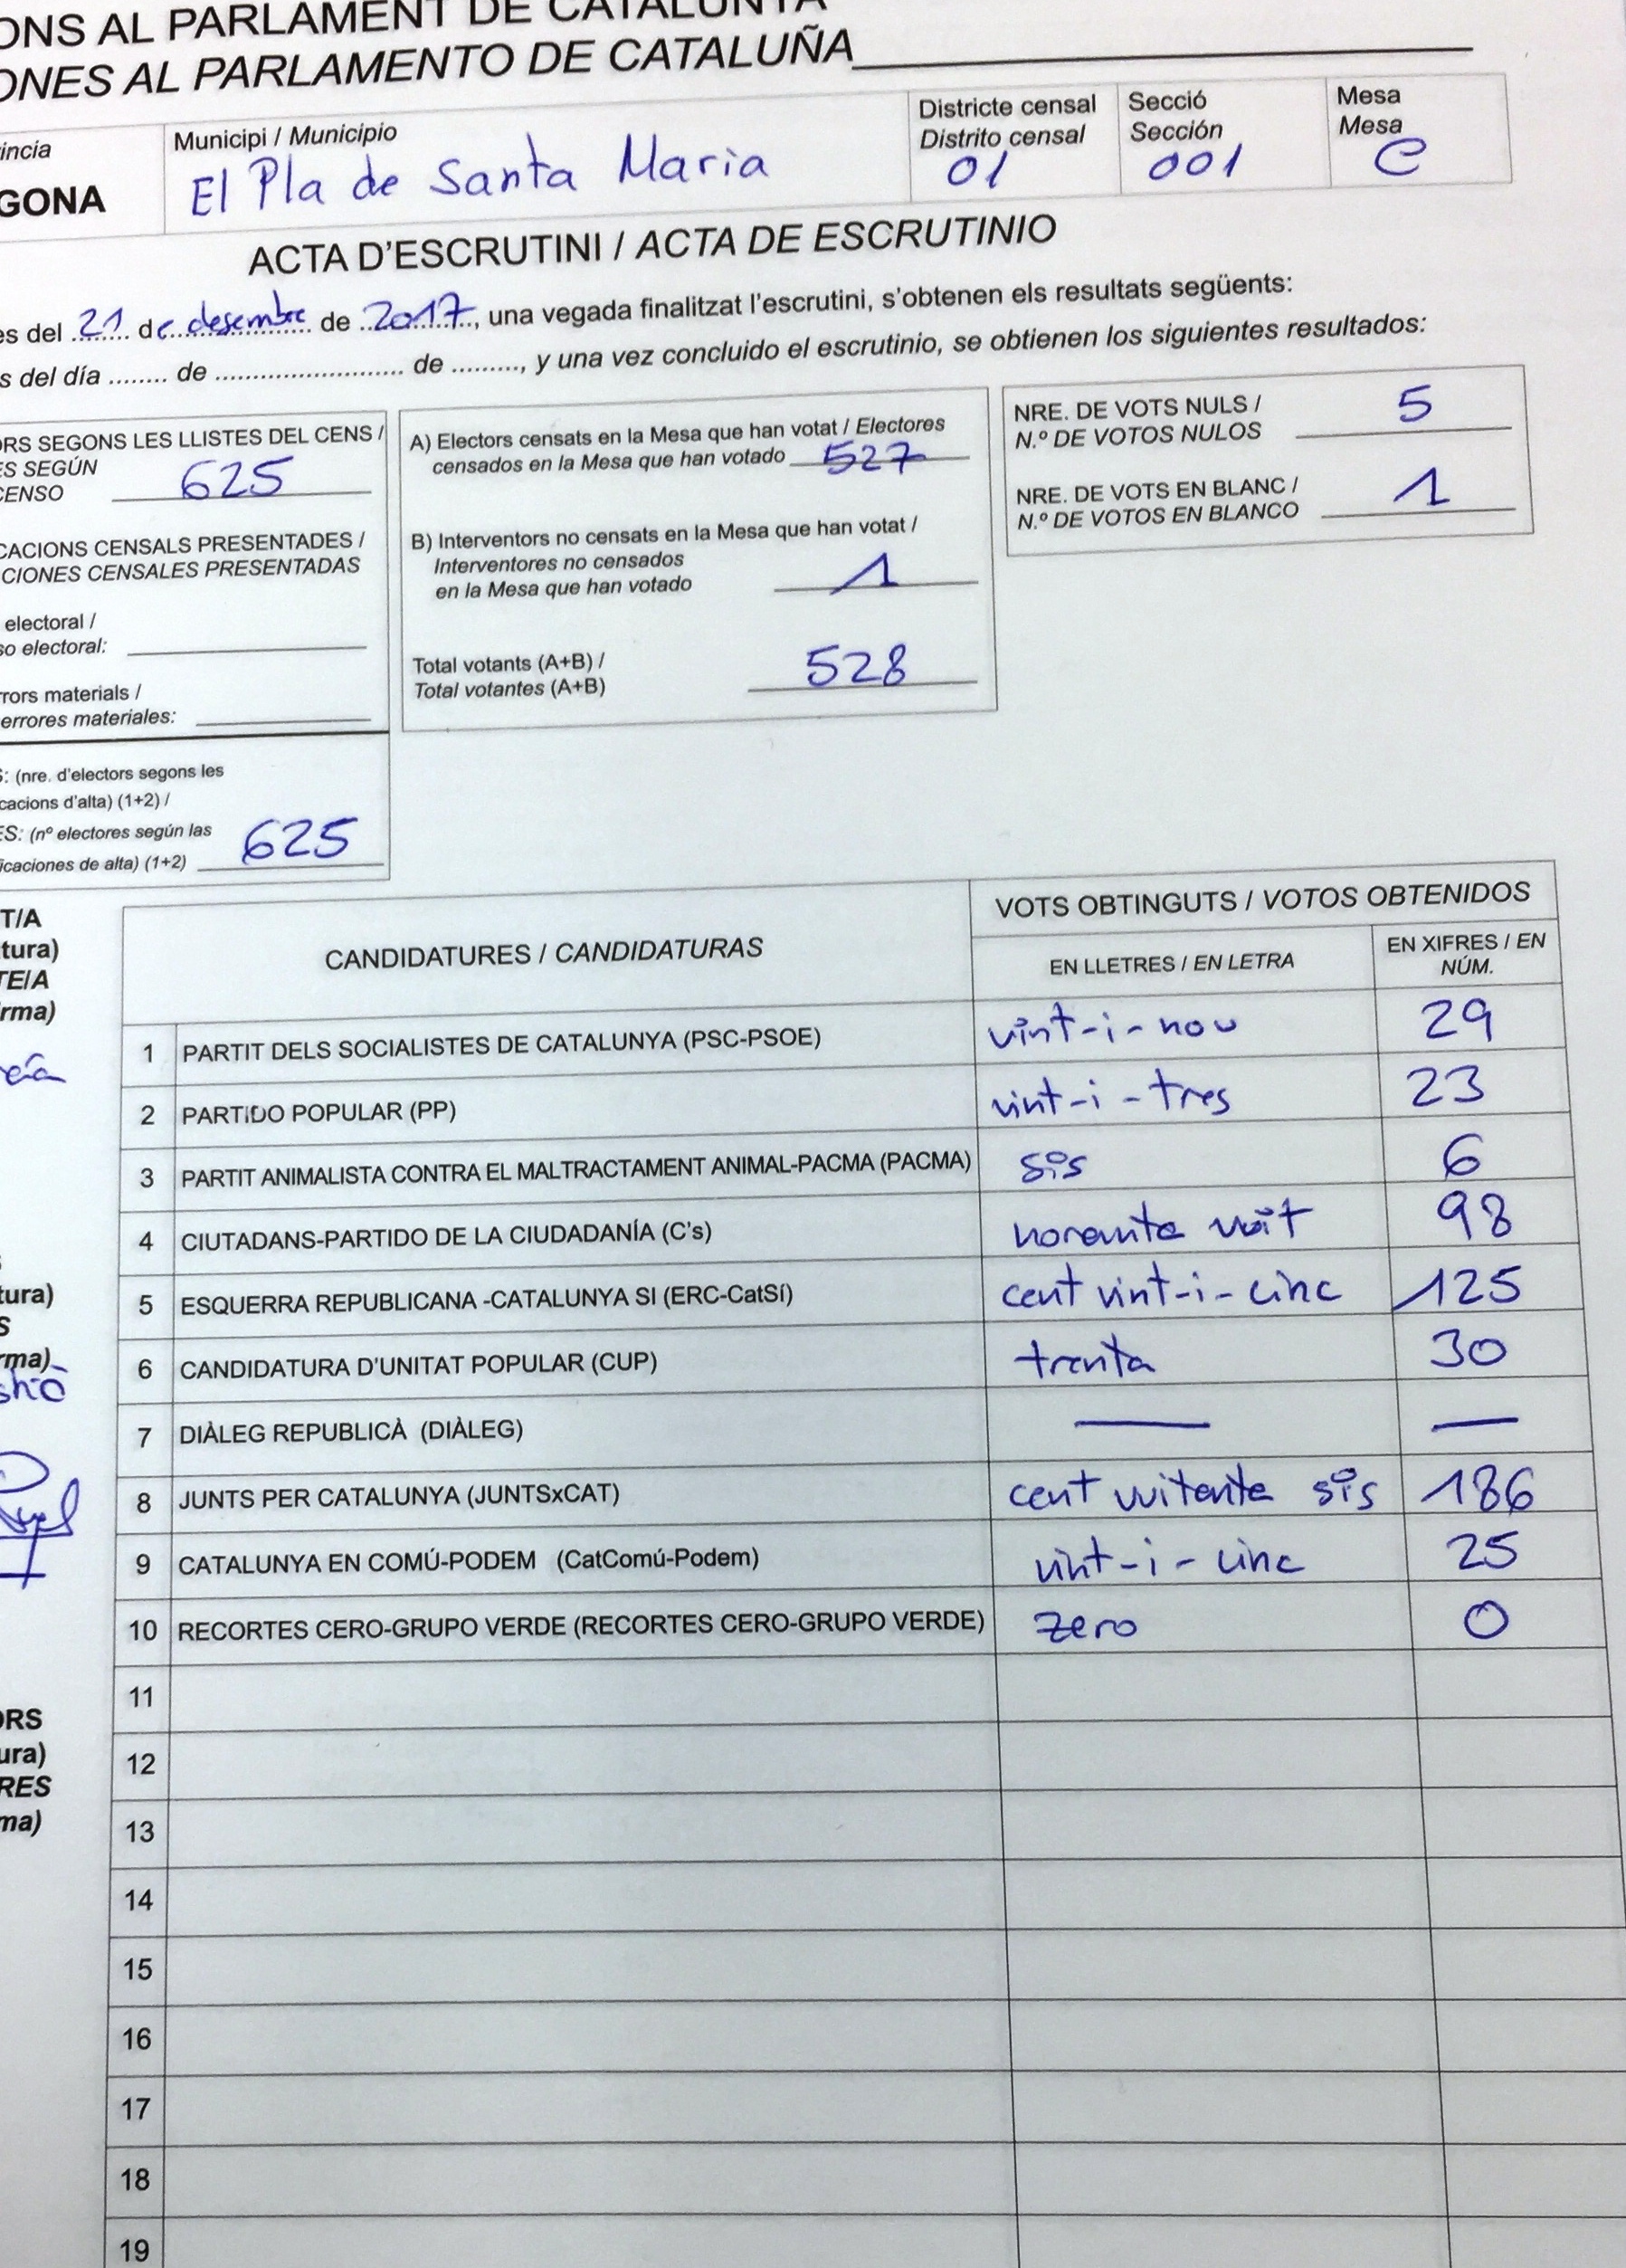 ONS AL PARLAMENT DE CATALUNYA
ONES AL PARLAMENTO DE CATALUÑA
incia
Municipi / Municipio
Districte censal
Distrito censal
Secció
Sección
Mesa
Mesa
GONA
El Pla de Santa Maria
01
001
C
ACTA D'ESCRUTINI / ACTA DE ESCRUTINIO
es del 21 de desembre de 2017, una vegada finalitzat l'escrutini, s'obtenen els resultats següents:
s del día ........ de .............................. de ........., y una vez concluido el escrutinio, se obtienen los siguientes resultados:
ORS SEGONS LES LLISTES DEL CENS /
ES SEGÚN
CENSO 625
CACIONS CENSALS PRESENTADES /
CIONES CENSALES PRESENTADAS
electoral /
so electoral:
rrors materials /
errores materiales:
S: (nre. d'electors segons les
cacions d'alta) (1+2) /
ES: (nº electores según las
icaciones de alta) (1+2) 625
A) Electors censats en la Mesa que han votat / Electores
censados en la Mesa que han votado 527
B) Interventors no censats en la Mesa que han votat /
Interventores no censados
en la Mesa que han votado 1
Total votants (A+B) /
Total votantes (A+B) 528
NRE. DE VOTS NULS /
N.º DE VOTOS NULOS 5
NRE. DE VOTS EN BLANC /
N.º DE VOTOS EN BLANCO 1
T/A
tura)
TE/A
rma)
tura)
S
rma)
ORS
ura)
RES
ma)
CANDIDATURES / CANDIDATURAS
VOTS OBTINGUTS / VOTOS OBTENIDOS
EN LLETRES / EN LETRA
EN XIFRES / EN
NÚM.
1 PARTIT DELS SOCIALISTES DE CATALUNYA (PSC-PSOE) vint-i-nou 29
2 PARTIDO POPULAR (PP) vint-i-tres 23
3 PARTIT ANIMALISTA CONTRA EL MALTRACTAMENT ANIMAL-PACMA (PACMA) sis 6
4 CIUTADANS-PARTIDO DE LA CIUDADANÍA (C's) noranta vuit 98
5 ESQUERRA REPUBLICANA -CATALUNYA SI (ERC-CatSí) cent vint-i-cinc 125
6 CANDIDATURA D'UNITAT POPULAR (CUP) trenta 30
7 DIÀLEG REPUBLICÀ (DIÀLEG) — —
8 JUNTS PER CATALUNYA (JUNTSxCAT) cent vuitanta sis 186
9 CATALUNYA EN COMÚ-PODEM (CatComú-Podem) vint-i-cinc 25
10 RECORTES CERO-GRUPO VERDE (RECORTES CERO-GRUPO VERDE) zero 0
11
12
13
14
15
16
17
18
19